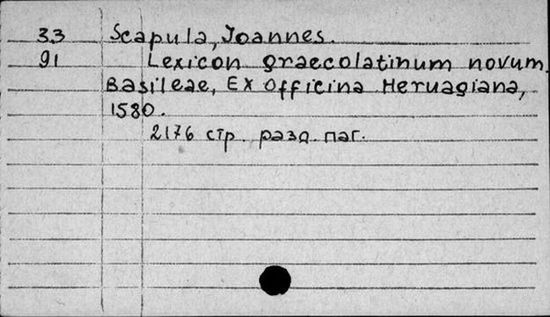 33 Scapula, Joannes.
91 Lexicon graecolatinum novum.
Basileae, Ex officina Hervagiana,
1580.
2176 стр. разд. паг.